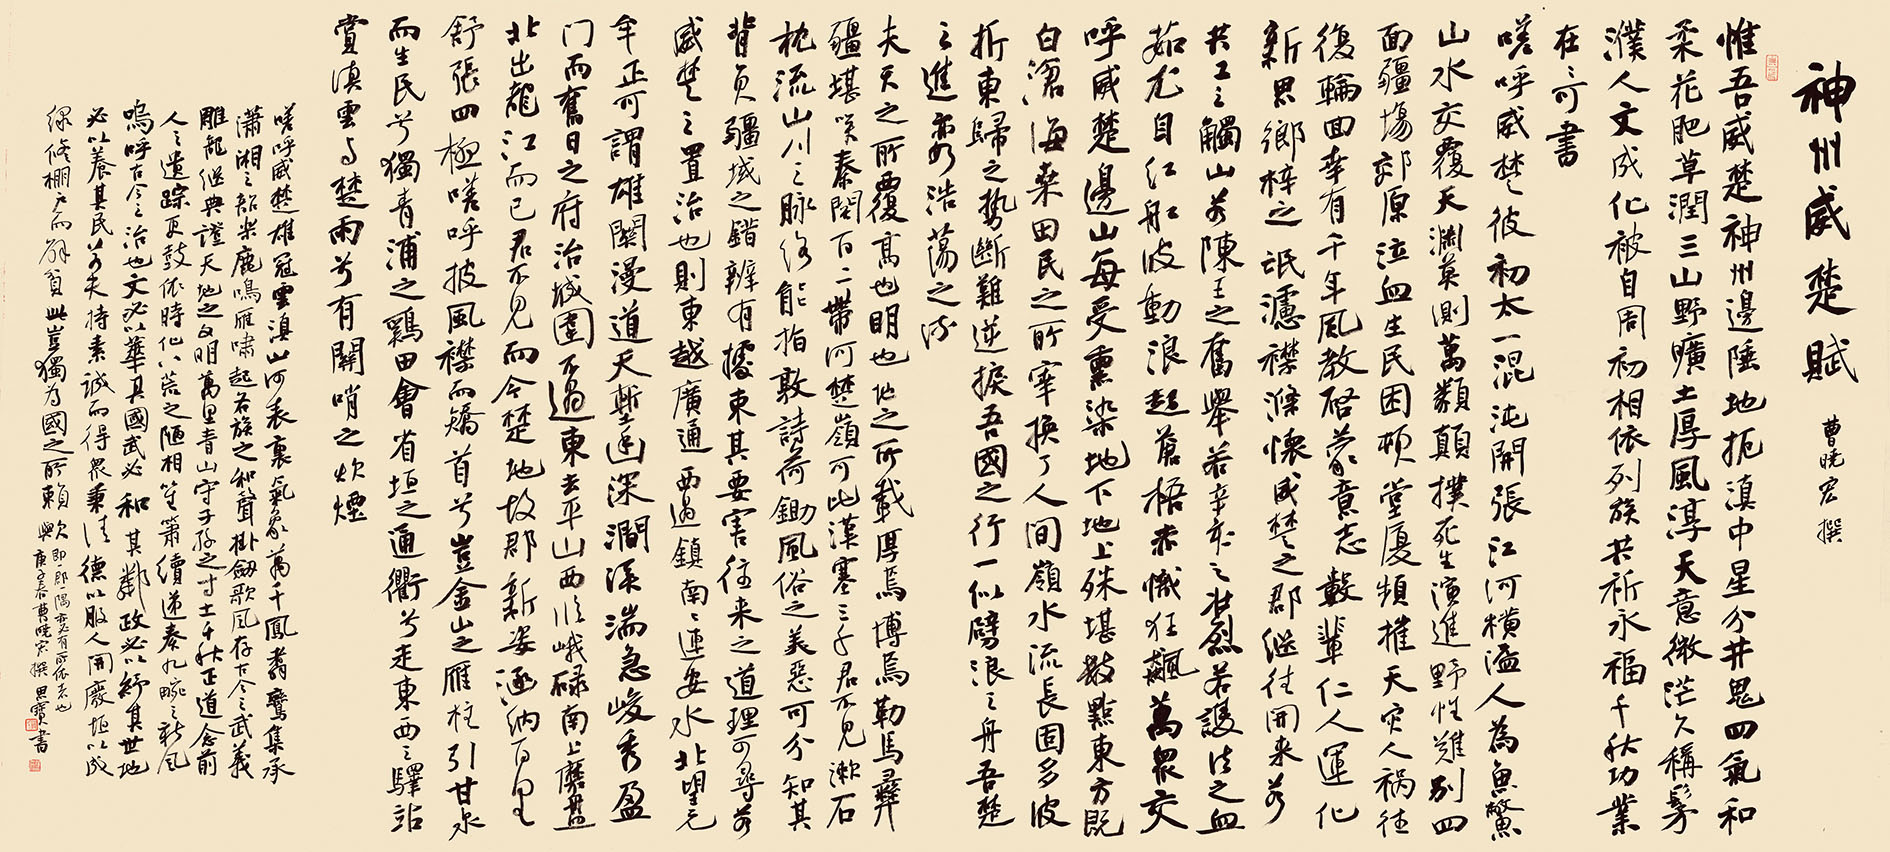 神州威楚賦
曹晓宏 撰
惟吾威楚神州邊陲地扼滇中星分井鬼四氣和
柔花肥草潤三山野曠土厚風淳天意微茫久稱髳
濮人文成化被自周初相依列族共祈永福千秋功業
在在可書
嗟呼威楚彼初太一混沌開張江河横溢人為魚鱉
山水交覆天淵莫測萬類顛撲死生演進野性難別四
面疆場郊原泣血生民困頓堂廈頻摧天灾人祸往
復輪回幸有千年風教啓蒙意志數輩仁人運化
新思鄉梓之氓濾襟滌懷威楚之郡继往開来若
共工之觸山若陳王之奮舉若辛亥之壯烈若護法之血
茹尤自红船波動浪起蒼梧赤幟狂飆萬衆交
呼威楚邊山每受熏染地下地上殊堪數點東方既
白滄海桑田民之所宰换了人间嶺水流長固多波
折東歸之勢斷難逆捩吾國之行一似劈浪之舟吾楚
之進亦若浩蕩之流
夫天之所覆高也明也地之所載厚焉博焉勒馬彝
疆堪嘆秦関百二帶河楚嶺可比漢塞三千君不見漱石
枕流山川之脉络能指敦詩荷鋤風俗之美惡可分知其
背負疆域之錯辨有據東其要害往来之道理可尋若
威楚之置治也則東越廣通西過鎮南南連安水北望元
牟正可謂雄關漫道天塹迤深澗深湍急峻秀盈
门而奮日之府治城圍不過東去平山西临峨碌南上磨盘
北出龍江而已君不見而今楚地故郡新姿涵纳百里
舒張四極嗟呼披風襟而矯首兮豈金山之雁柱引甘泉
而生民兮獨青浦之鷄田會省垣之通衢兮走東西之驛站
賞滇雲与楚雨兮有關哨之炊煙
嗟呼威楚雄冠雲滇山河表裏氣象萬千鳳翥鸞集承
瀟湘之韶樂鹿鳴雁嘯起右族之和聲掛劍歌风存古今之武義
雕龍继典證天地之文明萬里青山守子孫之寸土千秋正道念前
人之遺踪更鼓依時化八荒之陋相笙簫續递奏九畹之新風
嗚呼古今之治也文必以華其國武必和其鄰政必以紓其世地
必以養其民若夫持素誠而得衆秉清德以服人開廢垣以成
绿修棚户而解貧此豈獨為國之所賴欤即一郡一隅亦必有所依者也
庚子春曹曉宏撰 思寶書